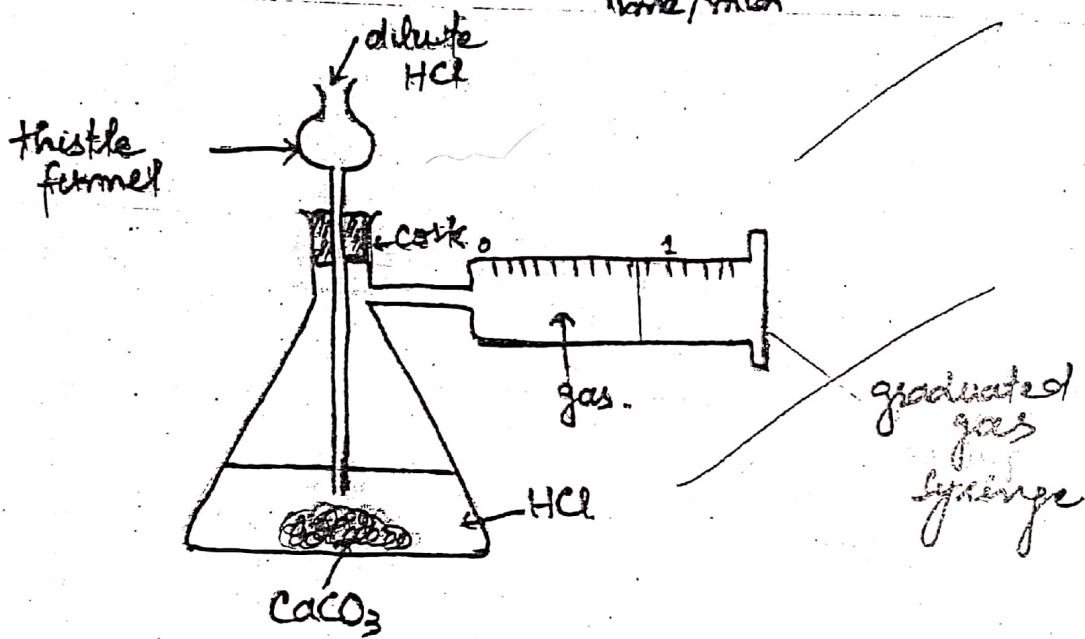 dilute
HCl
thistle
funnel
cork
0 1
gas.
graduated
gas
syringe
HCl
CaCO₃